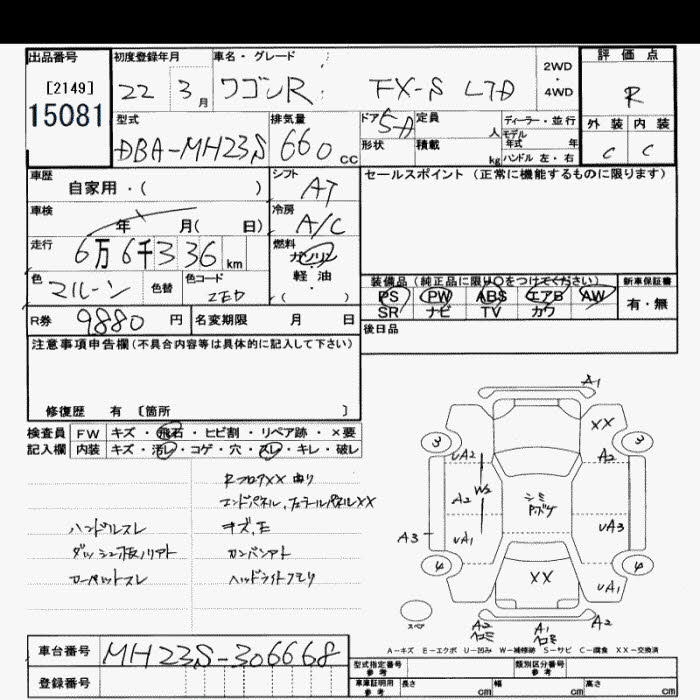 出品番号 初度登録年月 車名・グレード 2WD・4WD 評価点
[2149] 22 3月 ワゴンR FX-S LTD R
15081 型式 排気量 ドア 5D 定員 人 ディーラー・並行 外装 内装
DBA-MH23S 660cc 形状 積載 kg モデル年式 年 C C
ハンドル 左・右
車歴 自家用・( ) シフト AT セールスポイント (正常に機能するものに限ります)
車検 年 月( 日) 冷房 A/C
走行 6万6千336km 燃料 ガソリン
軽・油
・( )
色 マルーン 色替 色コード ZED
装備品 (純正品に限り○をつけてください) 新車保証書
PS PW ABS エアB AW 有・無
SR ナビ TV カワ
R券 9880円 名変期限 月 日 後日品
注意事項申告欄(不具合内容等は具体的に記入して下さい)
修復歴 有 〔箇所 〕
検査員 FW キズ・飛石・ヒビ割・リペア跡・×要
記入欄 内装 キズ・汚レ・コゲ・穴・スレ・キレ・破レ
RフロアXX 曲り
エンドパネル,
XX
ハンドルスレ キズ,E
カンバンアト
カーペットスレ ヘッドライトクモリ
A1
XX
3 3
UA2 A2
W2
A2 シミ
A3 UA1 UA3
4 4
XX UA1
スペア A2 A1 A2
A-キズ E-エクボ U-凹み W-補修跡 S-サビ C-腐食 XX-交換済
車台番号 MH23S-306668
登録番号
型式指定番号 参考 類別区分番号 参考
車庫証明用 参考 長さ cm 幅 cm 高さ cm